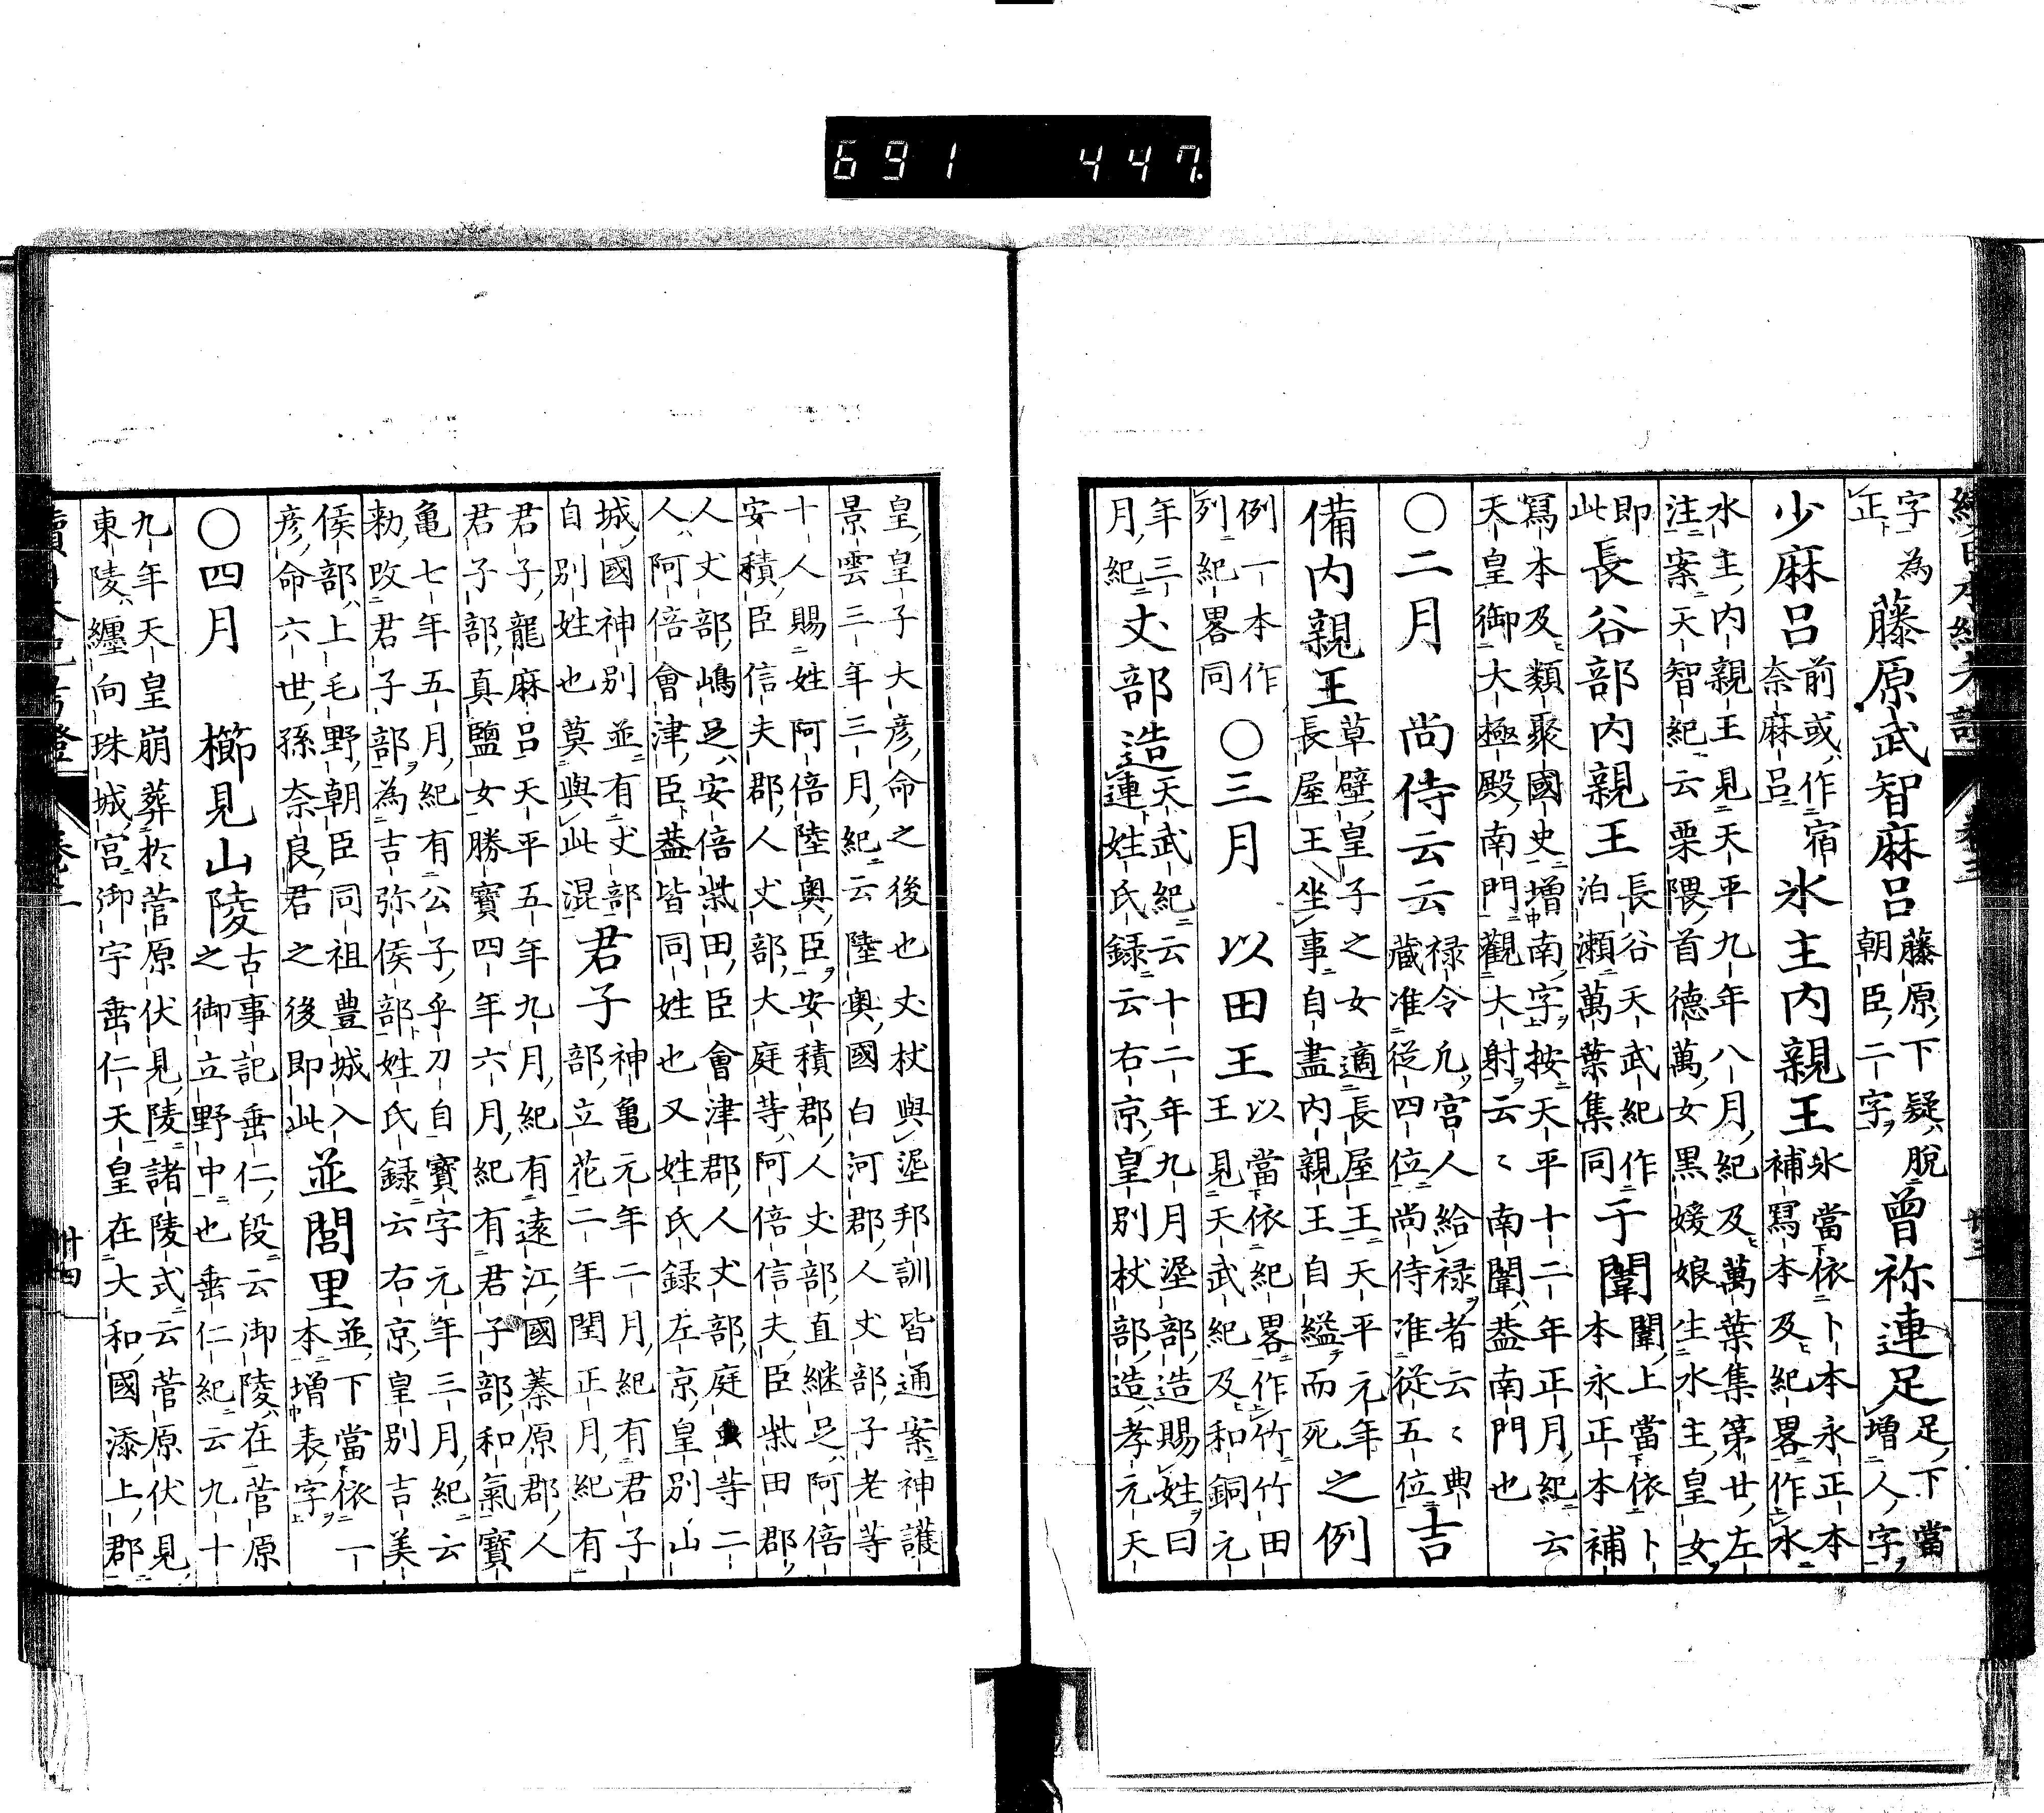 691 447
字為藤原武智麻呂藤原下疑脱曽祢連足足下當
正朝臣二字増人字
少麻呂前或作宿氷主内親王氷當依卜本永正本
奈麻呂補寫本及紀畧作水
水主内親王見天平九年八月紀及萬葉集第廿左
注案天智紀云栗隈首德萬女黒媛娘生水主皇女
即長谷部内親王長谷天武紀作于闈闈上當依卜
此泊瀬萬葉集同本永正本補
寫本及類聚國史増南字按天平十二年正月紀云
天皇御大極殿南門觀大射云〻南闈葢南門也
〇二月 尚侍云云禄令凡宮人給禄者云〻典吉
藏准從四位尚侍准從五位
備内親王草壁皇子之女適長屋王天平元年之例
長屋王坐事自盡内親王自縊而死
例一本作〇三月 以田王以當依紀畧作竹竹田
列紀畧同王見天武紀及和銅元
年三丈部造天武紀云十二年九月埿部造賜姓曰
月紀連姓氏録云右京皇別杖部造孝元天
皇皇子大彦命之後也丈杖與埿邦訓皆通案神護
景雲三年三月紀云陸奥國白河郡人丈部子老等
十人賜姓阿倍陸奥臣安積郡人丈部直継足阿倍
安積臣信夫郡人丈部大庭等阿倍信夫臣柴田郡
人丈部嶋足安倍柴田臣會津郡人丈部庭虫等二
人阿倍會津臣葢皆同姓也又姓氏録左京皇別山
城國神別並有丈部君子神亀元年二月紀有君子
自別姓也莫與此混部立花二年閏正月紀有
君子龍麻呂天平五年九月紀有遠江國蓁原郡人
君子部真鹽女勝寳四年六月紀有君子部和氣寳
亀七年五月紀有公子乎刀自寳字元年三月紀云
勅改君子部為吉弥侯部姓氏録云右京皇別吉美
侯部上毛野朝臣同祖豊城入並閭里並下當依一
彦命六世孫奈良君之後即此本増表字
〇四月 櫛見山陵古事記垂仁段云御陵在菅原
之御立野中也垂仁紀云九十
九年天皇崩葬於菅原伏見陵諸陵式云菅原伏見
東陵纏向珠城宮御宇垂仁天皇在大和國添上郡
卅四